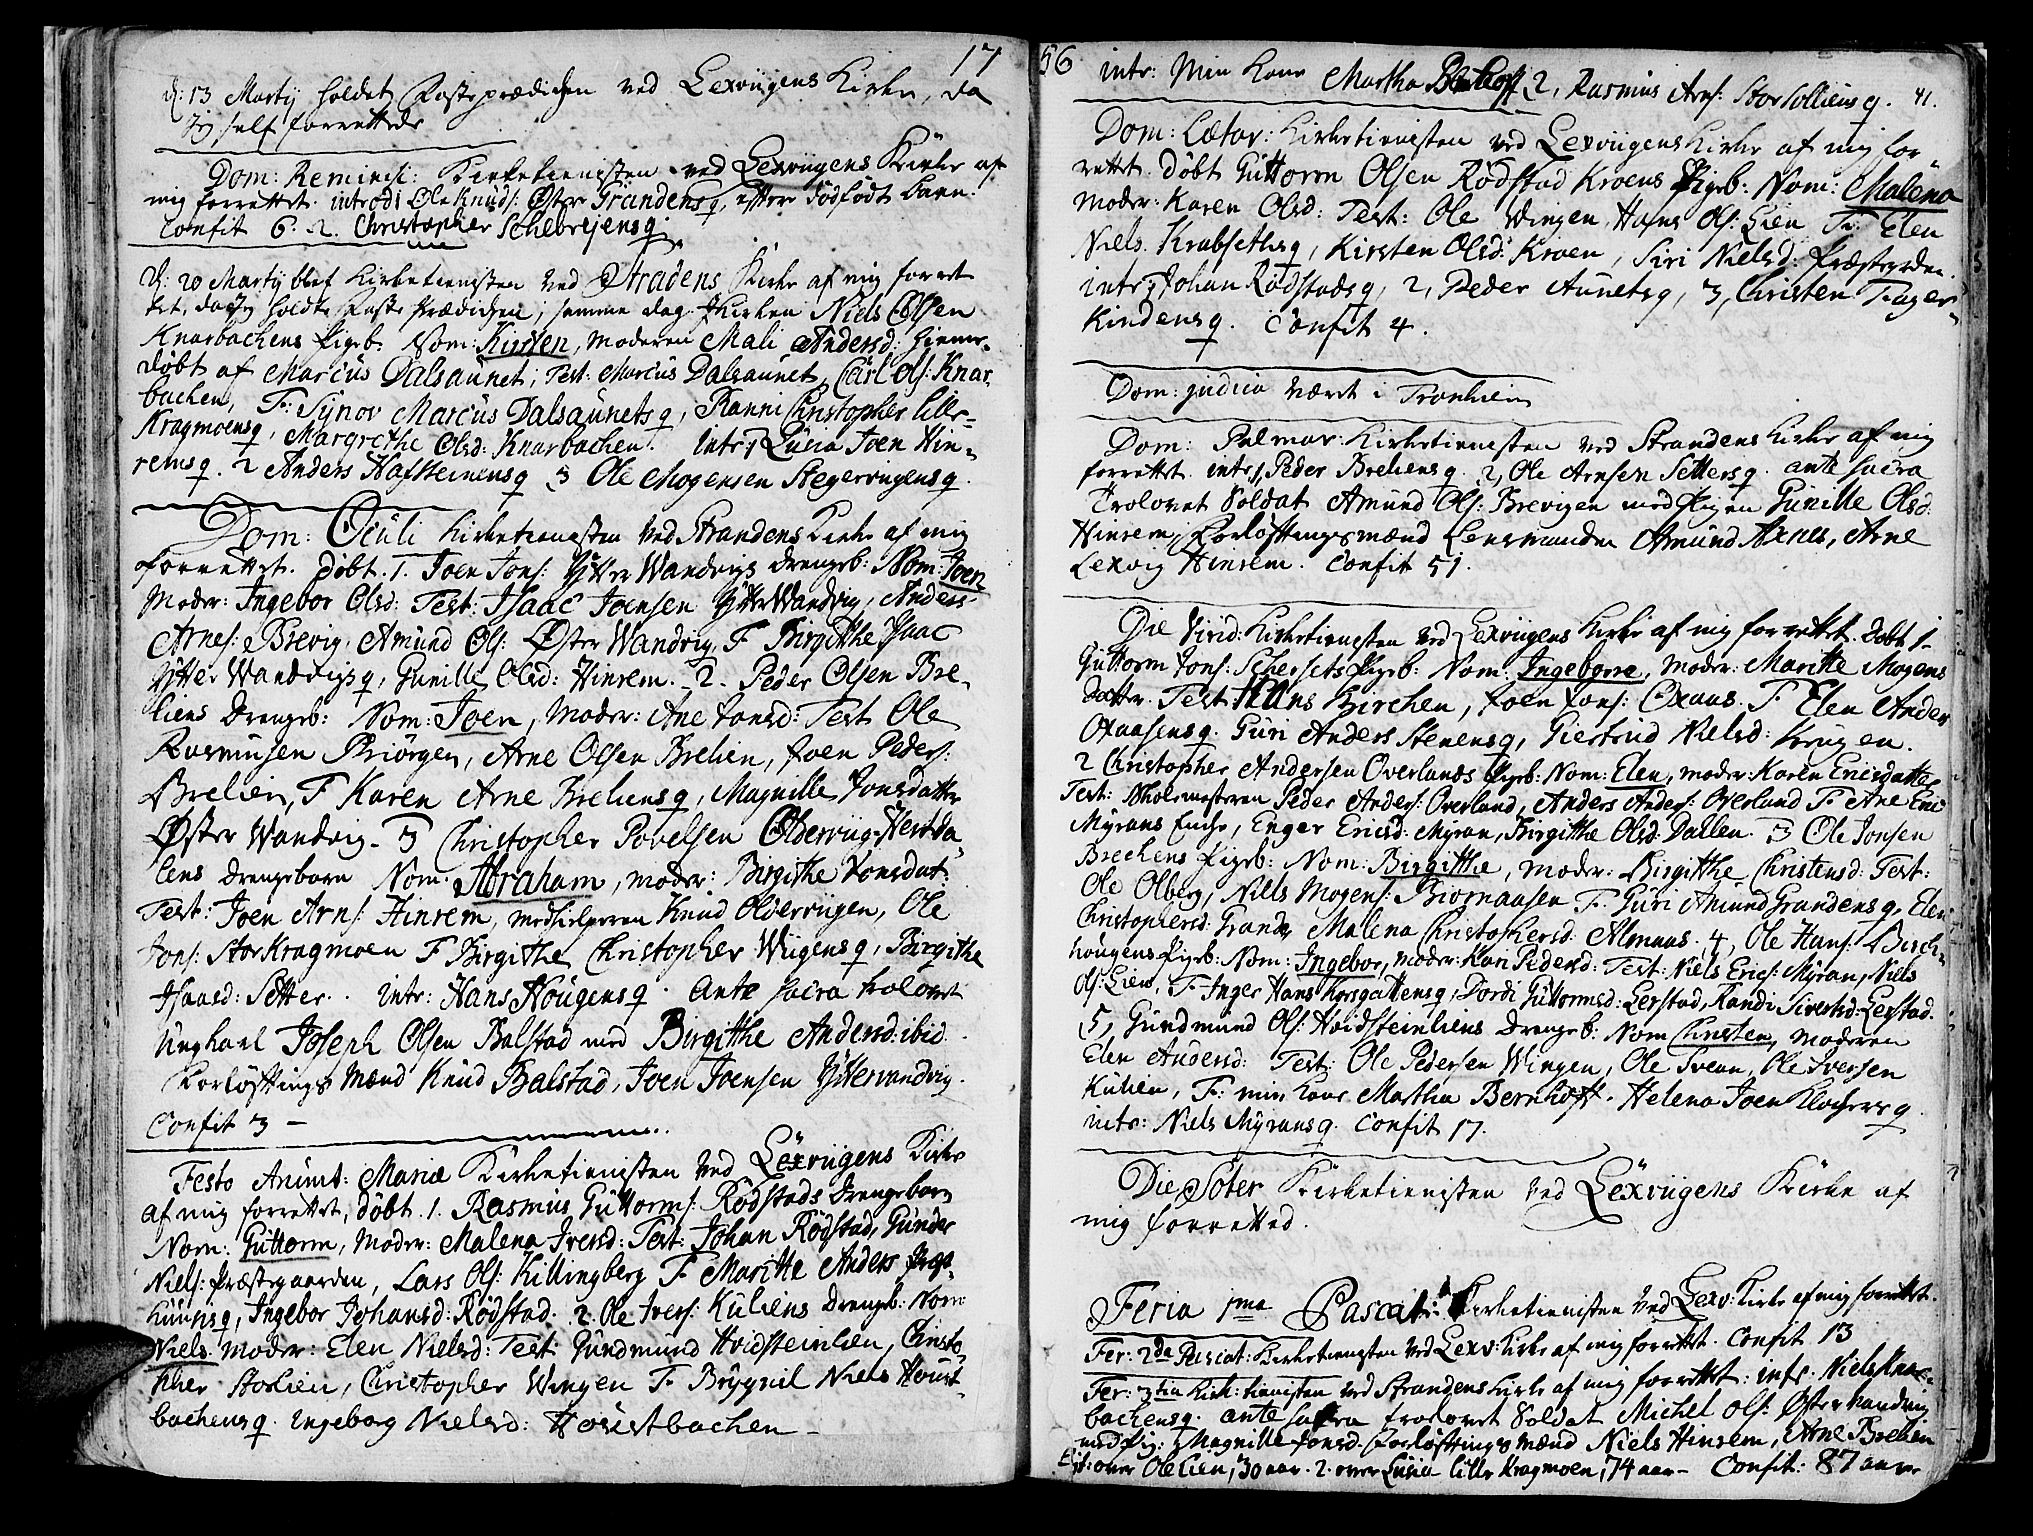 17
d: 13 Martij holdet Fasteprædichen ved Lexvügens Kirke, da
Jeg self forrettede
Dom: Reminisc: Kirketienisten ved Lexvügens Kirke af
mig forrettet. introd: Ole Knuds: Øster Grandensq, efter dødfødt barn.
Confit 6. 2. Christopher Schevrejensq.
d: 20 Martij blef Kirketienisten ved Stradens Kirke af mig forret
tet, da jeg holdte Faste Prædichen; samme dag J Kirken Niels Olsen
Knarbachens Pigeb: Nom: Kirsten, moderen Mali Andersd: hjemme-
døbt af Marcus Dalsaunet; Test: Marcus Dalsaunet, Carl Ols: Knar
bachen, F: Synov Marcus Dalsaunetsq, Ranni Christopher Lille-
Kragmoensq, Margrethe Olsd: Knarbachen. Intr: 1 Lucia Joen Hin-
remsq. 2 Anders Hafsteinensq 3 Ole Mogensen Hegervigensq.
Dom: Oculi Kirketienisten ved Strandens Kirke af mig
forrettet. Døbt. 1. Joen Jons: Ytter Wandvigs Drengeb: Nom: Joen
Moder: Ingebor Olsd: Test: Isaac Joensen Ytter Wandvig, Anders
Arnes: Brevig, Amund Ols: Øster Wandvig, F Birgithe Isaac
Ytter Wandvigsq, Gunille Olsd: Hinrem. 2. Peder Olsen Bre-
liens Drengeb: Nom: Joen, Moder: Ane Jonsd: Test Ole
Rasmusen Biørgen, Arne Olsen Brelien, Joen Peders:
Brelien, F Karen Arne Breliensq, Magnille Jonsdatter
Øster Wandvig. 3 Christopher Povelsen Olderviig-Herdda-
lens Drengebarn Nom. Abraham, Moder: Birgithe Jonsdat:
Test: Joen Arns: Hinrem, Medhielperen Knud Oldervügen, Ole
Jons: Stor Kragmoen F Birgithe Christopher Wügensq, Birgithe
Isaasd: Setter. intr: Hans Hougensq. Ante sacra trolovet
Ungkarl Joseph Olsen Balstad med Birgithe Andersd: ibid.
Forløftings Mænd Knud Balstad, Joen Joensen Yttervandvig.
Confit 3 –
Festo Anunt: Mariæ Kirketienisten ved Lexvügens Kirke
af mig forrettet, døbt. 1. Rasmus Guttorms: Rødstads Drengebarn
Nom: Guttorm, Moder: Malena Iversd: Test: Johan Rødstad, Gunder
Niels: Præstegaarden, Lars Ols: Killingberg F Maritte Anders
Ingebor Johansd: Rødstad. 2. Ole Ivers: Kuliens Drengeb: Nom
Niels. Moder: Elen Nielsd: Test: Gundmund Hvidsteinlien, Christo-
pher Storlien, Christopher Wingen F Brygnil Niels Houst-
bachensq. Ingeborg Nielsd: Houstbachen –
56
41.
intr: Min Kone Martha Bernhoft 2, Rasmus Arns: Stor Solliensq.
Dom: Lætar: Kirketienisten ved Lexvügens Kirke af mig for-
rettet. døbt Guttorm Olsen Rødstad Kroens Pigeb: Nom: Malena
Moder: Karen Olsd: Test: Ole Wingen, Hans Ols: Lien F: Elen
Niels Krabsethsq, Kirsten Olsd: Kroen, Siri Nielsd: Præstgrden.
intr: 1 Johan Rødstadsq, 2, Peder Aunetsq, 3, Christen Fager-
Kindensq. Confit 4.
Dom: Judica været i Tronhiem
Dom: Palmar: Kirketienisten ved Strandens Kirke af mig
forrettet. intr: 1, Peder Breliensq. 2, Ole Arnsen Settersq. ante sacra
Trolovet Soldat Amund Ols: Brevigen med Pigen Gunille Olsd:
Hinrem, Forløftingsmænd Lensmanden Amund Axnes, Arne
Lexvig Hinrem. Confit 51.
Die Virid: Kirketienisten ved Lexvügens Kirke af mig forrettet. døbt 1.
Guttorm Jons: Schersets Pigeb: Nom: Ingeborre, Moder: Maritte Mogens
datter. Test Hans Birchen, Joen Jons: Oxaas. F Elen Ander
Oxaasensq. Guri Anders Stenensq, Giertrud Nielsd: Haugen.
2 Christopher Andersen Overlands Pigeb: Nom: Elen, moder: Karen Ericsdatter
Test: Skolemesteren Peder Anders: Overland, Anders Anders: Overland F. Ane Eric
Myrans Enche, Enger Ericsd: Myran, Birgithe Olsd: Dallen. 3 Ole Jonsen
Brechens Pigeb: Nom: Birgitthe, moder: Birgitthe Christensd: Test:
Ole Olberg, Niels Mogens: Biørnaasen F. Guri Amund Grandensq, Elen
Christophersd: Grande Malena Christophersd: Almaas. 4, Ole Hans: Birch-
hougens Pigeb: Nom: Ingebor, moder: Kari Pedersd: Test: Niels Erics: Myran, Niels
Ols: Lien, F. Inger Hans Korsgattensq, Dordi Guttormsd: Lerstad, Randi Sivertsd: Lerstad.
5, Gundmund Ols: Hvidsteinliens Drengeb: Nom Christen, Moderen
Elen Andersd: Test: Ole Pedersen Wingen, Ole Ole Iversen
Kulien, F: min Kone Martha Bernhoft. Helena Joen Klochersq.
intr: Niels Myransq. Confit 17.
Die Soter Kirketienisten ved Lexvügens Kirke af
mig forretted.
Feria 1ma Pascat: Kirketienisten ved Lexv: Kirke af mig forrettet.
Fer: 2da Pascat: Kirketienisten ved Lexv: Kirke af mig forrettet. Confit 13
Fer: 3tia Kirk: tienisten ved Strandens Kirke af mig forrettet: intr: Niels Knar-
bachensq. ante sacra trolovet Soldat Michel Ols: Øster Vandvig
med Pig: Magnille Jonsd. Forløftings Mænd Niels Hinrem, Arne Brelien
over Ole Lien, 30 aar. 2. over Lusia Lille Kragmoen, 74 aar – Confit: 87